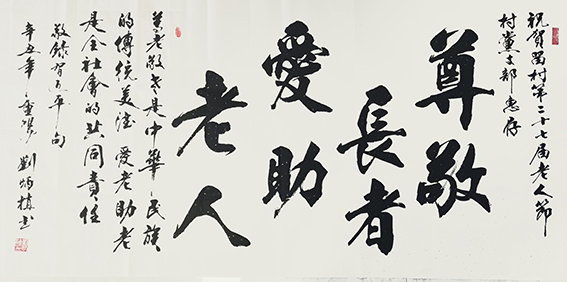 祝賀習村第二十七屆老人節
村黨支部惠存
尊敬
長者
愛助
老人
養老敬老是中華民族
的傳統美德 愛老助老
是全社會的共同責任
敬錄習近平句
辛丑年 重陽 劉炳楨書